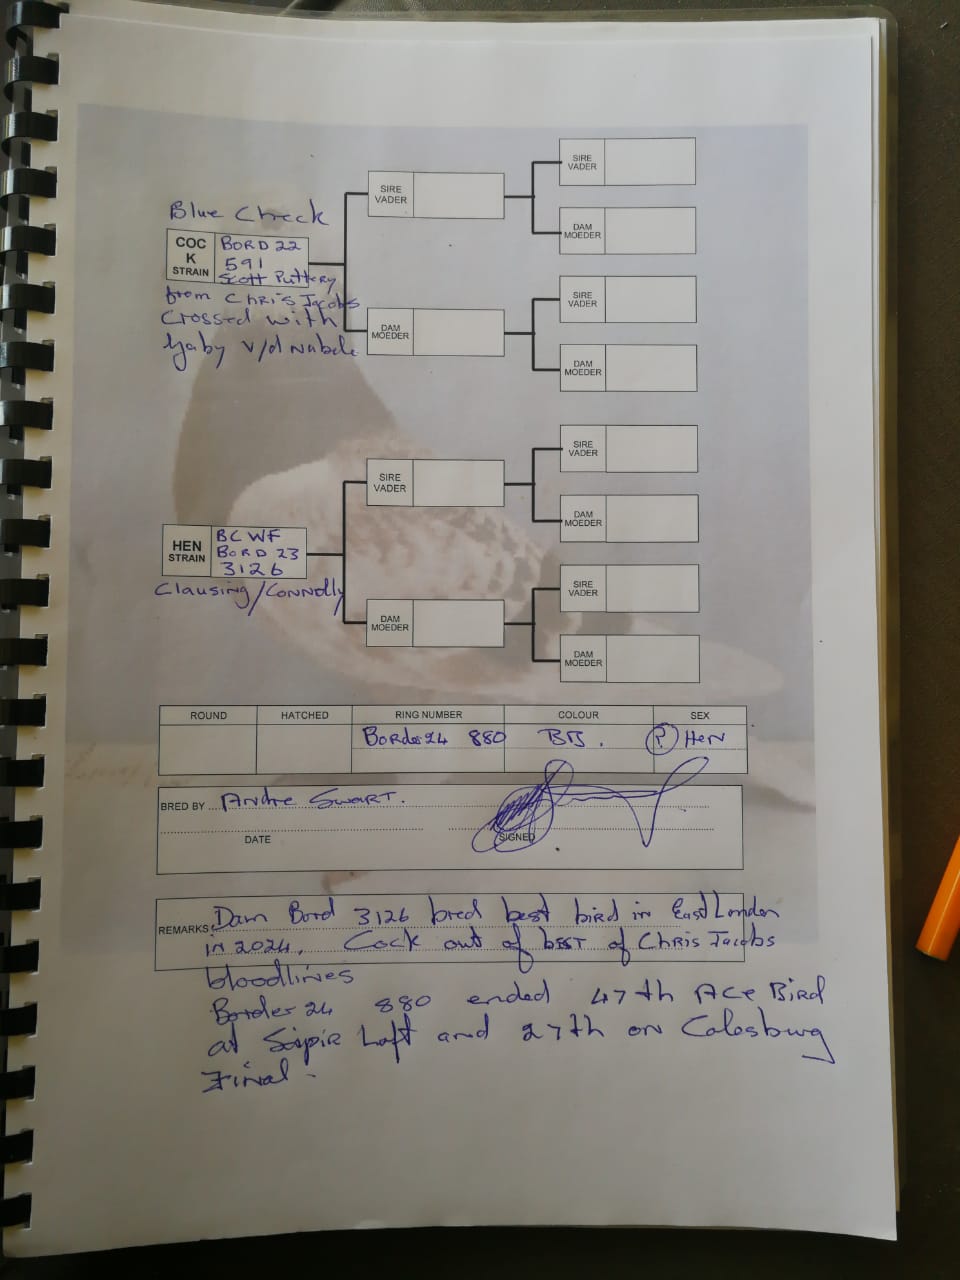 Blue Check
COC
K
STRAIN
BORD 22
591
Scott Puttery
from Chris Jacobs
Crossed with
Gaby v/d Nabele
SIRE
VADER
DAM
MOEDER
SIRE
VADER
DAM
MOEDER
SIRE
VADER
DAM
MOEDER
HEN
STRAIN
BCWF
BORD 23
3126
Clausing/Connolly
SIRE
VADER
DAM
MOEDER
SIRE
VADER
DAM
MOEDER
SIRE
VADER
DAM
MOEDER
ROUND HATCHED RING NUMBER COLOUR SEX
Border 24 880 BB. ? Hen
BRED BY Andre Swart.
DATE SIGNED
REMARKS: Dam Bord 3126 bred best bird in East London
in 2024. Cock out of BEST of Chris Jacobs
bloodlines
Border 24 880 ended 47th Ace Bird
at Loft and 27th on Colesburg
Final.